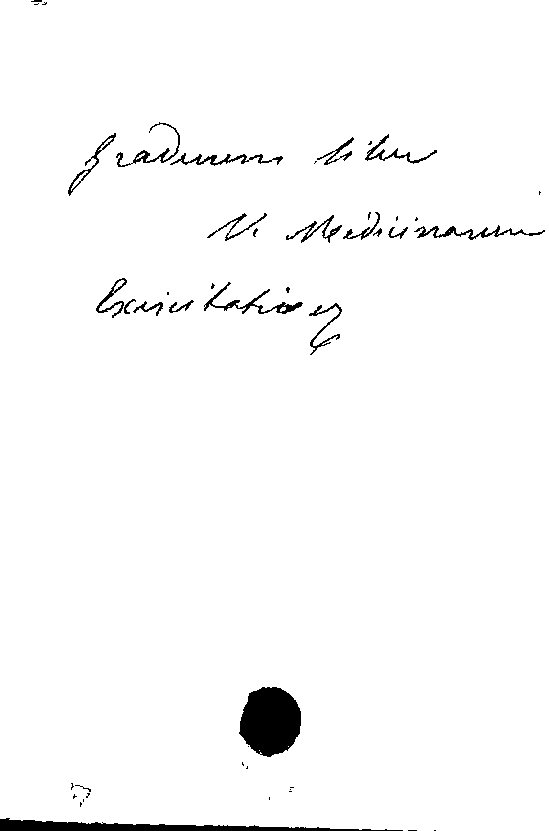 Graduum liber
V. Medicinarum
Exercitatioes